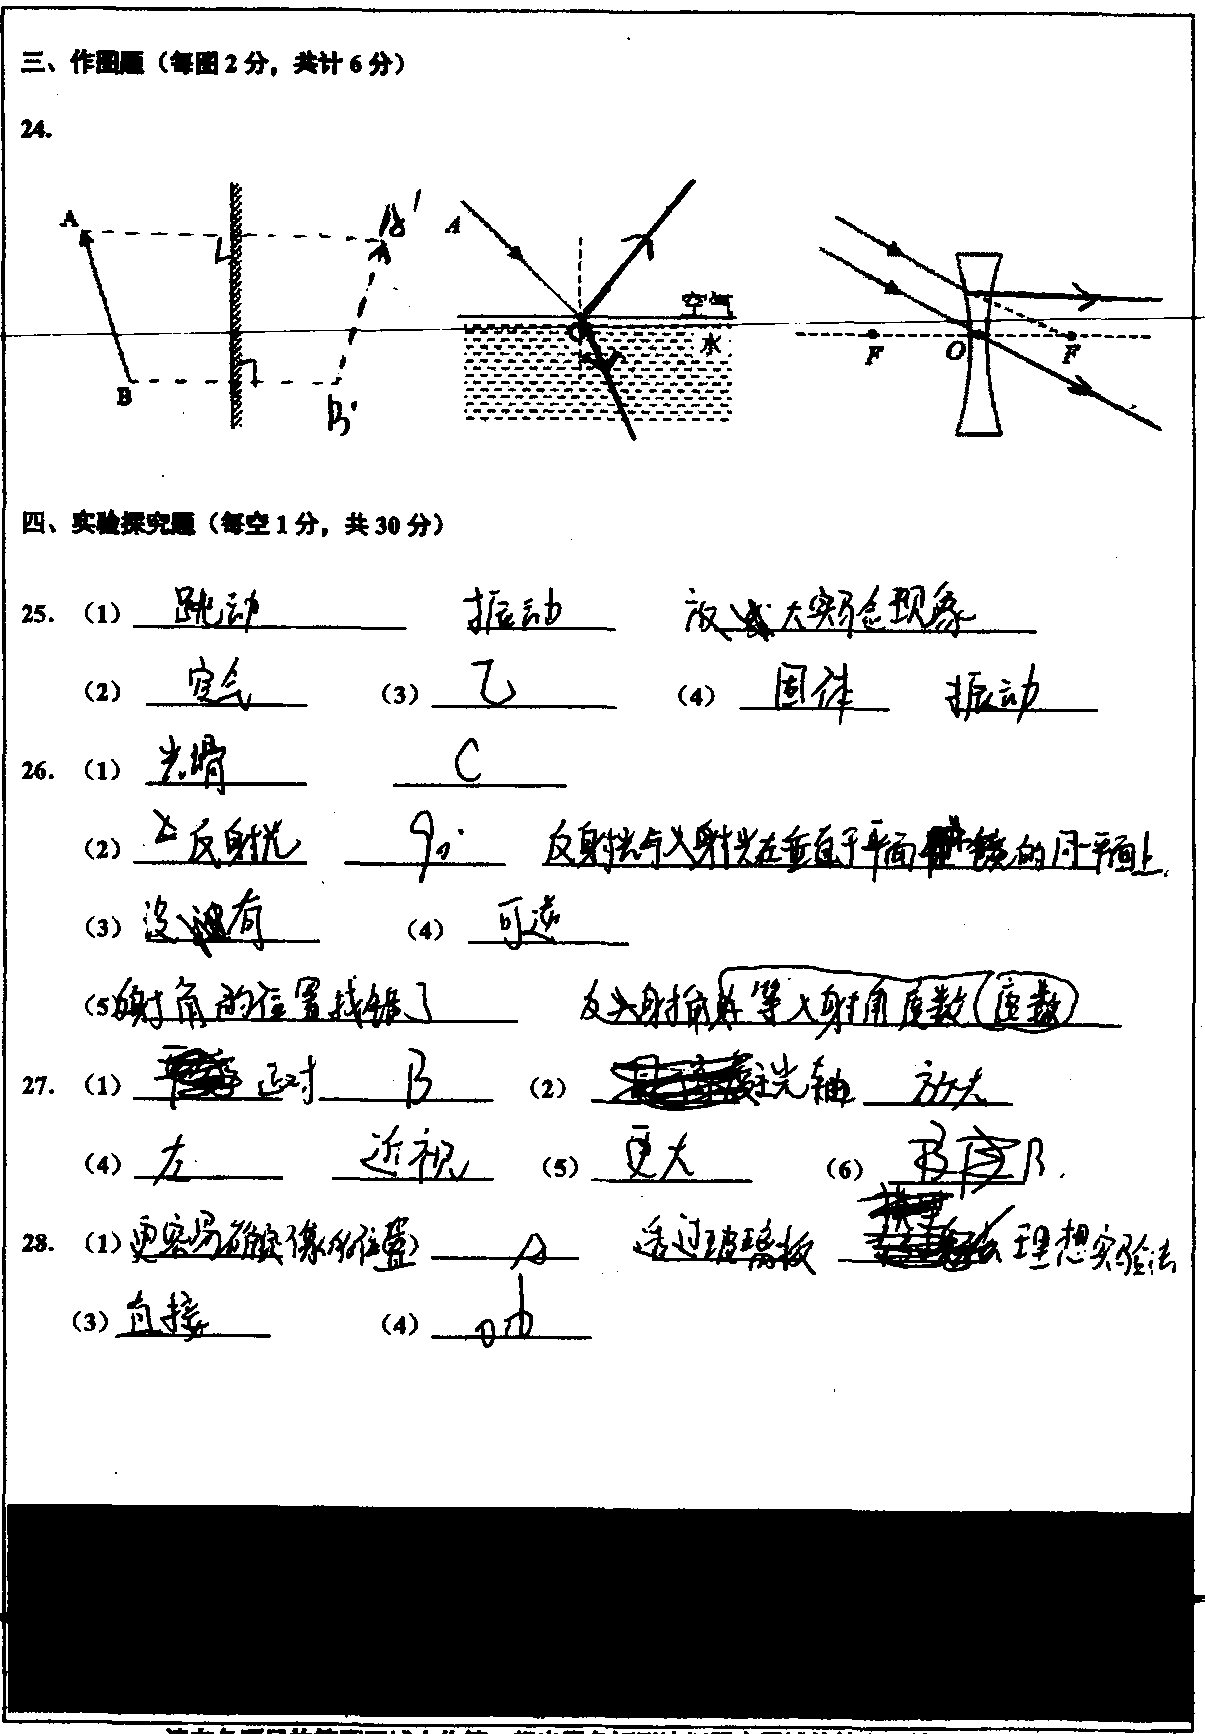 三、作图题（每图2分，共计6分）
24.
A B A' B'
A 空气 水
F O F
四、实验探究题（每空1分，共30分）
25.（1）跳动 振动 放大实验现象
（2）空气 （3）乙 （4）固体 振动
26.（1）光滑 C
（2）反射光 反射光与入射光在垂直于平面镜的同一平面上.
（3）没有 （4）可逆
（5）射角的位置找错了 等入射角度数（度数）
27.（1）正对 B （2）主光轴 放大
（4）左 近视 （5）更大 （6）B
28.（1）更容易确定像的位置 A 透过玻璃板 理想实验法
（3）直接
（4）